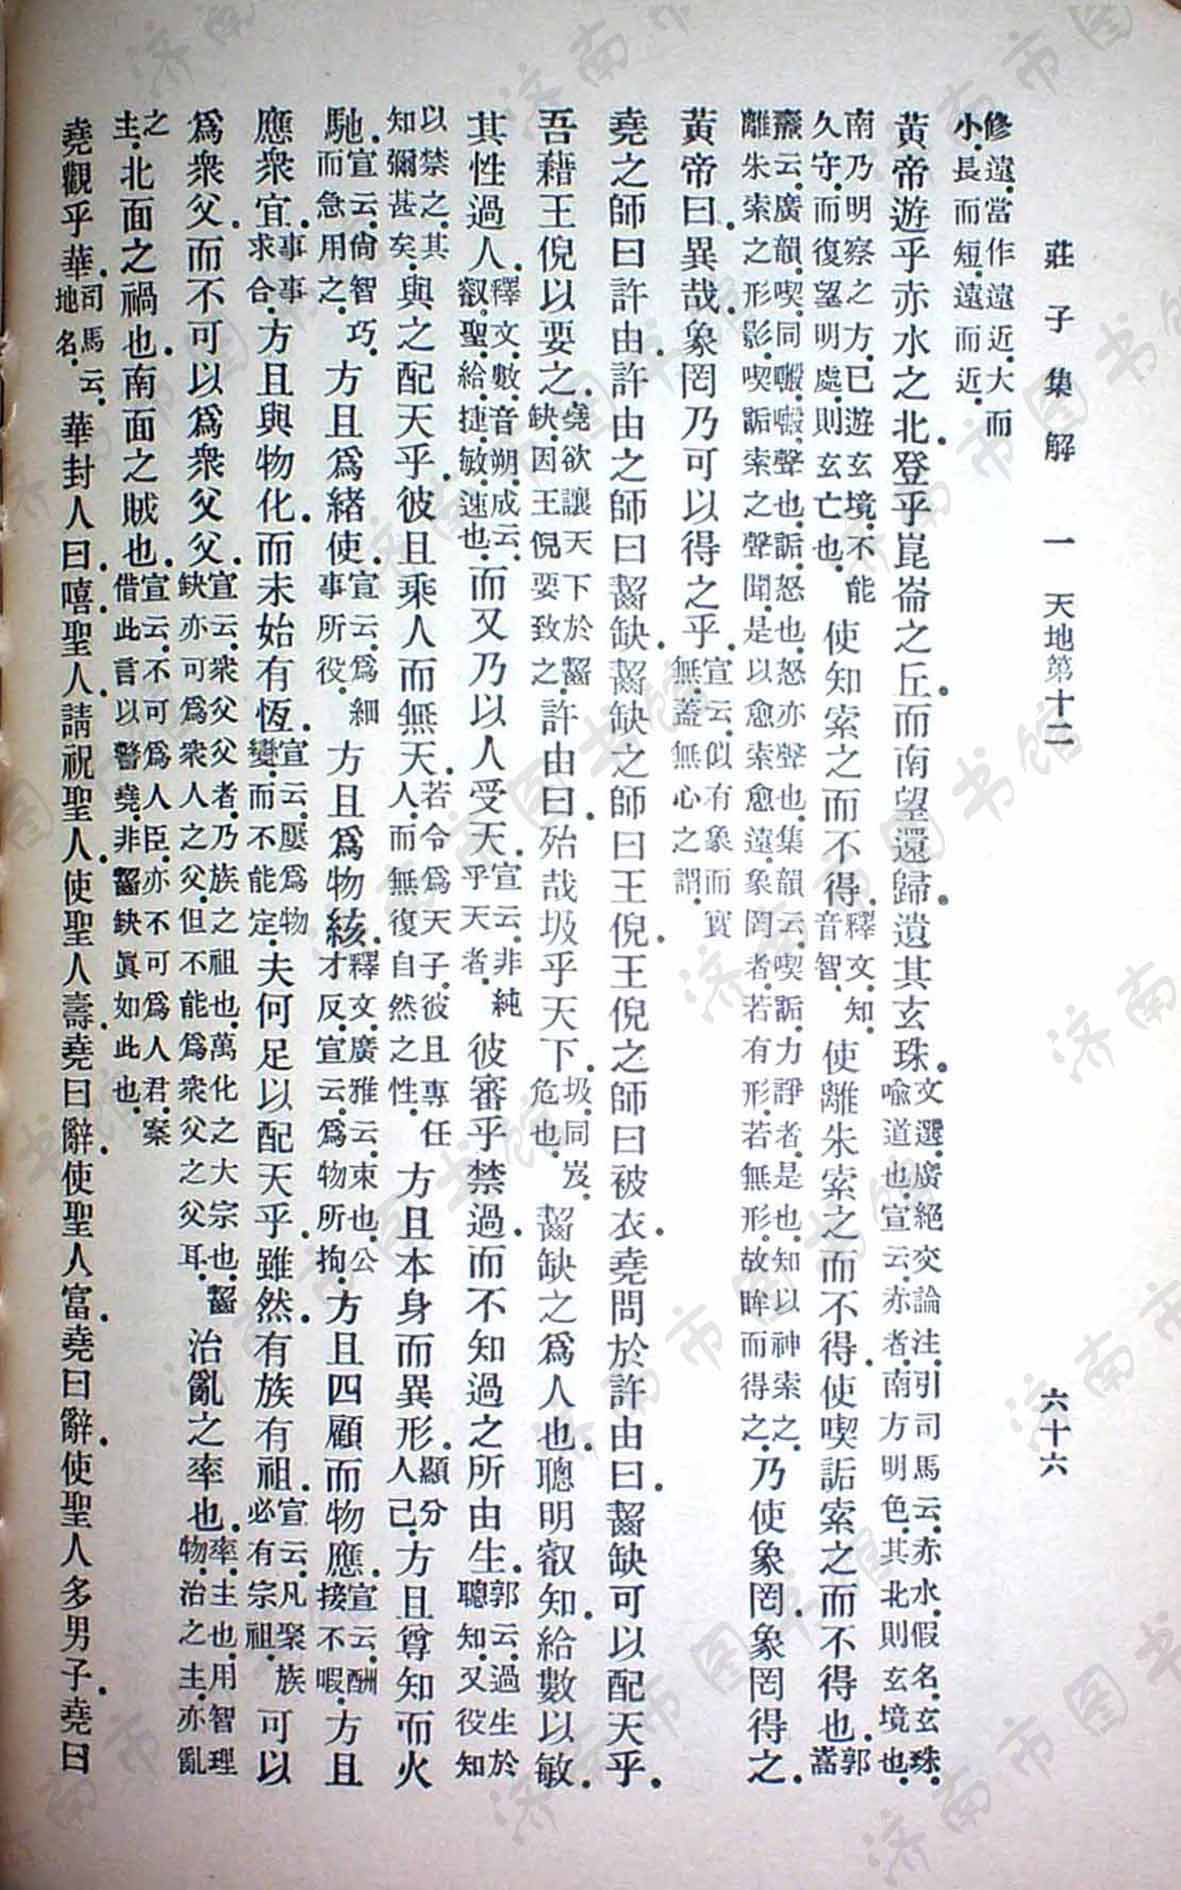 莊子集解　一　天地第十二　六十六
修遠.當作遠近.大而小.長而短.遠而近.
黃帝遊乎赤水之北.登乎崑崙之丘.而南望還歸.遺其玄珠.文選.廣絕交論注.引司馬云.赤水.假名.玄珠.喻道也.宣云.赤者.南方明色.其北則玄境也.
南乃明察之方.已遊玄境.不能久守.而復望明處.則玄亡也.使知索之而不得.釋文.知.音智.使離朱索之而不得.使喫詬索之而不得也.郭嵩
燾云.廣韻.喫.同噭.噭.聲也.詬.怒也.怒亦聲也.集韻云.喫詬.力諍者.是也.知以神索之.離朱索之形影.喫詬索之聲聞.是以愈索愈遠.象罔者.若有形.若無形.故眸而得之.乃使象罔.象罔得之.
黃帝曰.異哉.象罔乃可以得之乎.宣云.似有象而實無.蓋無心之謂.
堯之師曰許由.許由之師曰齧缺.齧缺之師曰王倪.王倪之師曰被衣.堯問於許由曰.齧缺可以配天乎.
吾藉王倪以要之.堯欲讓天下於齧缺.因王倪要致之.許由曰.殆哉圾乎天下.圾.同岌.危也.齧缺之爲人也.聰明叡知.給數以敏.
其性過人.釋文.數.音朔.成云.叡.聖.給.捷.敏.速也.而又乃以人受天.宣云.非純乎天者.彼審乎禁過.而不知過之所由生.郭云.過生於聰知.又役知
以禁之.其知彌甚矣.與之配天乎.彼且乘人而無天.若令爲天子.彼且專任人.而無復自然之性.方且本身而異形.顯分人己.方且尊知而火
馳.宣云.尙智巧.而急用之.方且爲緒使.宣云.爲細事所役.方且爲物絯.釋文.廣雅云.束也.公才反.宣云.爲物所拘.方且四顧而物應.宣云.酬接不暇.方且
應衆宜.事事求合.方且與物化.而未始有恆.宣云.屢爲物變.而不能定.夫何足以配天乎.雖然.有族有祖.宣云.凡聚族必有宗祖.可以
爲衆父.而不可以爲衆父父.宣云.衆父父者.乃族之祖也.萬化之大宗也.齧缺亦可爲衆人之父.但不能爲衆父之父耳.治亂之率也.率.主也.用智理物.治之主.亦亂
之主.北面之禍也.南面之賊也.宣云.不可爲人臣.亦不可爲人君.案借此言以警堯.非齧缺眞如此也.
堯觀乎華.司馬云.地名.華封人曰.嘻.聖人.請祝聖人.使聖人壽.堯曰辭.使聖人富.堯曰辭.使聖人多男子.堯曰